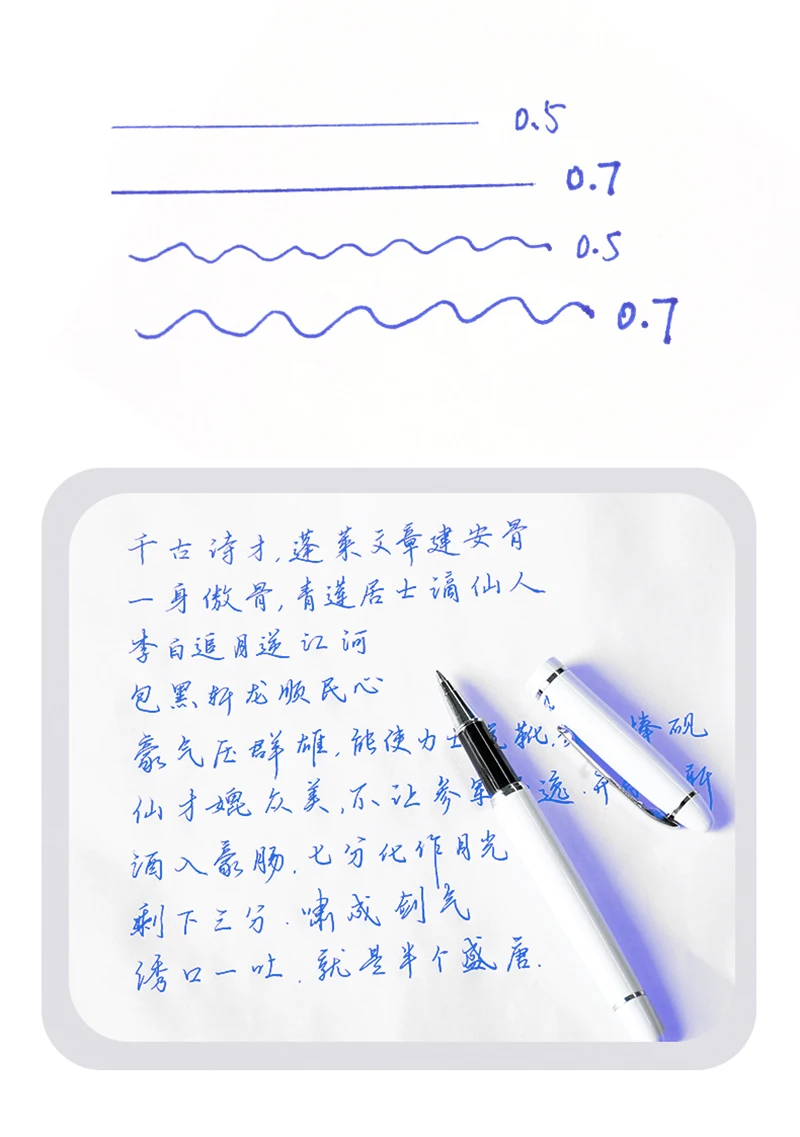 0.5
0.7
0.5
0.7
千古诗才,蓬莱文章建安骨
一身傲骨,青莲居士谪仙人
李白追月逆江河
包黑斩龙顺民心
豪气压群雄,能使力士 靴, 捧砚
仙才媲众美,不让参军 逸.开 新
酒入豪肠.七分化作月光
剩下三分.啸成剑气
绣口一吐.就是半个盛唐.